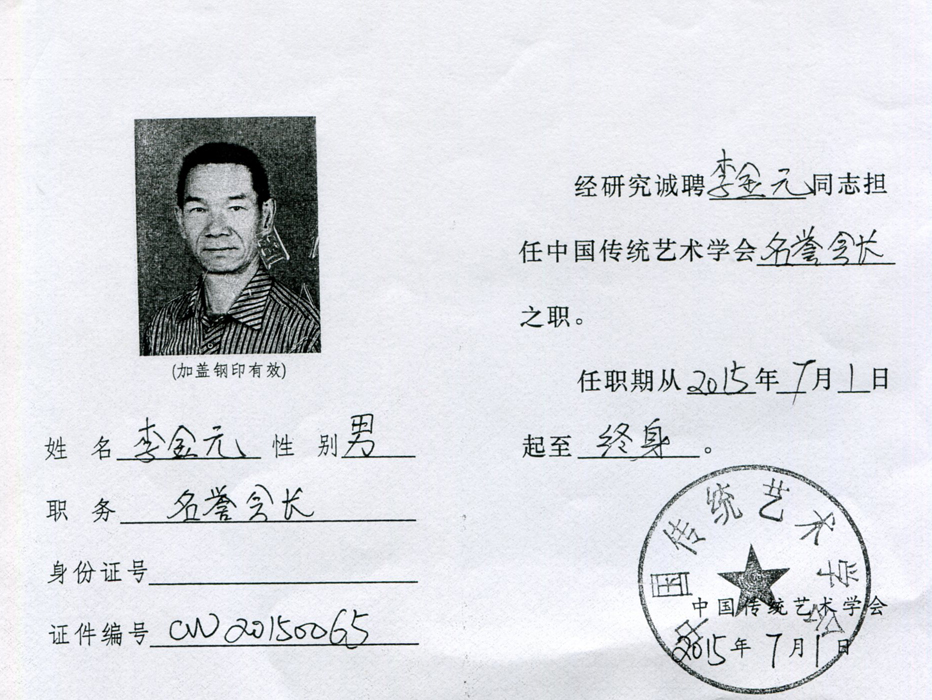 (加盖钢印有效)
姓 名 李金元 性 别 男
职 务 名誉会长
身份证号
证件编号 CW20150065
经研究诚聘李金元同志担
任中国传统艺术学会名誉会长
之职。
任职期从2015年7月1日
起至 终身 。
中国传统艺术学会
中国传统艺术学会
2015年7月1日